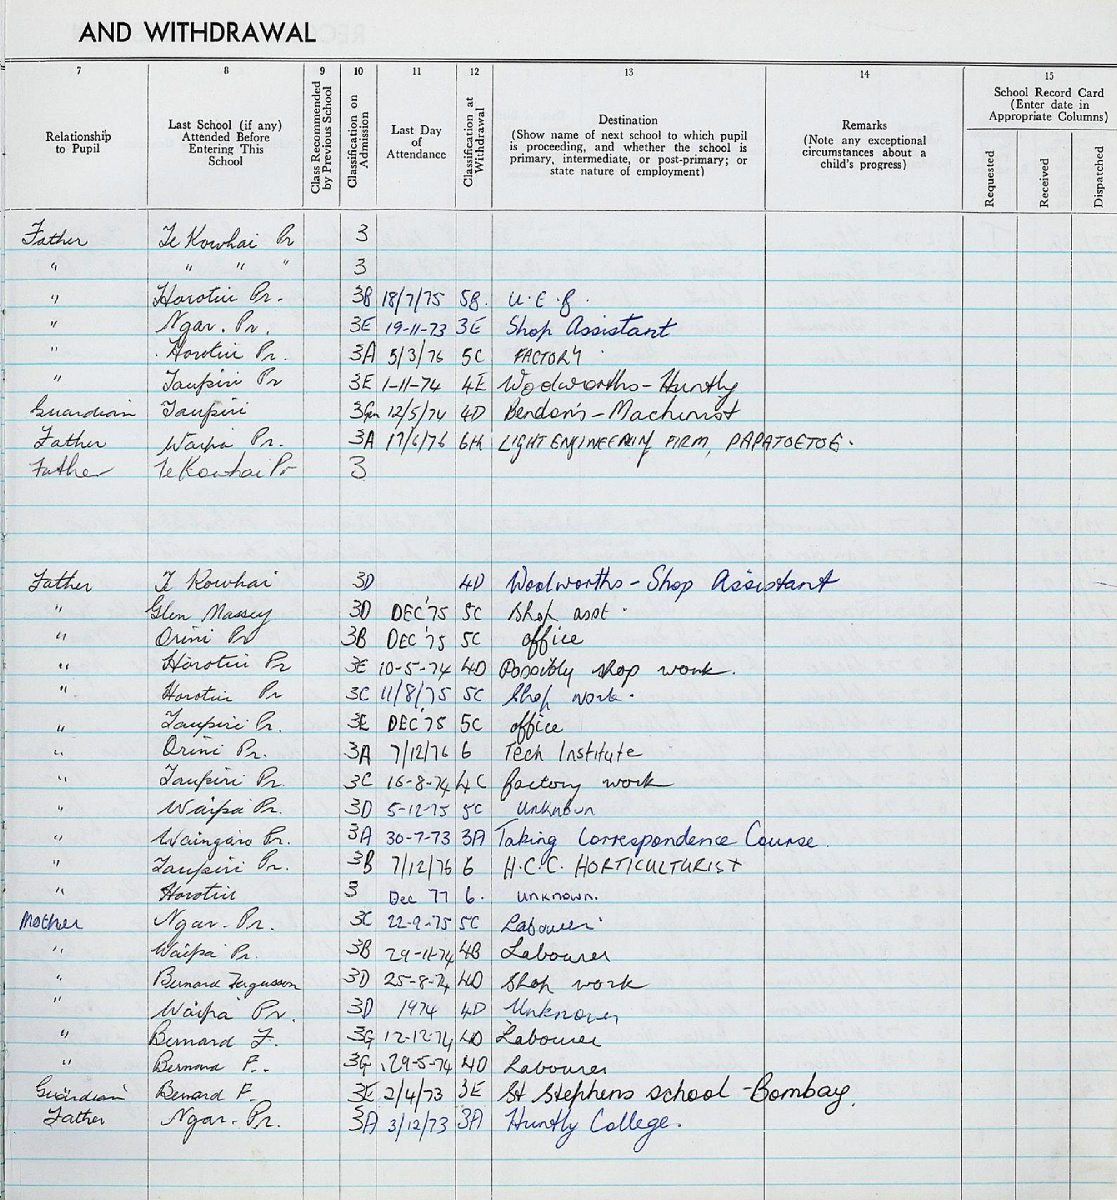 AND WITHDRAWAL
7 8 9 10 11 12 13 14 15
Relationship to Pupil
Last School (if any) Attended Before Entering This School
Class Recommended by Previous School
Classification on Admission
Last Day of Attendance
Classification at Withdrawal
Destination
(Show name of next school to which pupil is proceeding, and whether the school is primary, intermediate, or post-primary; or state nature of employment)
Remarks
(Note any exceptional circumstances about a child's progress)
School Record Card
(Enter date in Appropriate Columns)
Requested Received Dispatched
Father Te Kowhai Pr 3
" " " " 3
" Horotiu Pr. 3B 18/7/75 5B. U.E.B.
" Ngar. Pr. 3E 19-11-73 3E Shop Assistant
" Horotiu Pr. 3A 5/3/76 5C FACTORY
" Taupiri Pr 3E 1-11-74 4E Woolworths - Huntly
Guardian Taupiri 12/5/74 4D Bendon's - Machinist
Father Waipa Pr. 3A 17/6/76 LIGHT ENGINEERING FIRM, PAPATOETOE.
Father Te Kowhai Pr 3
Father T Kowhai 3D 4D Woolworths - Shop Assistant
" Glen Massey 3D DEC '75 5C Shop asst.
" Orini Pr 3B DEC '75 5C office
" Horotiu Pr 3E 10-5-74 4D Possibly shop work.
" Horotiu Pr 3C 11/8/75 5C Shop work.
" Taupiri Pr. 3E DEC '75 5C office
" Orini Pr. 3A 7/12/76 6 Tech Institute
" Taupiri Pr. 3C 16-8-74 4C factory work
" Waipa Pr. 3D 5-12-75 5C Unknown
" Waingaro Pr. 3A 30-7-73 3A Taking Correspondence Course.
" Taupiri Pr. 3B 7/12/76 6 H.C.C. HORTICULTURIST
" Horotiu 3 Dec 77 6. Unknown.
Mother Ngar. Pr. 3C 22-9-75 5C Labourer
" Waipa Pr. 3B 29-11-74 4B Labourer
" Bernard Fergusson 3D 25-8-74 4D Shop work
" Waipa Pr. 3D 1974 4D Unknown
" Bernard F. 3G 12-12-74 4D Labourer
" Bernard F. 3G 29-5-74 4D Labourer
Guardian Benard F. 3E 2/4/73 3E St Stephens school - Bombay.
Father Ngar. Pr. 3A 3/12/73 3A Huntly College.